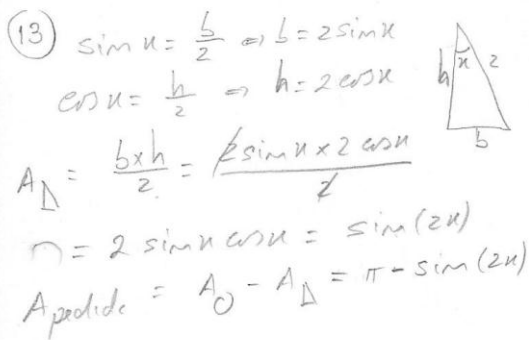 13 sin x = b/2 ⇔ b = 2 sin x
cos x = h/2 ⇔ h = 2 cos x
h x 2
b
A△ = (b×h)/2 = (2 sin x × 2 cos x)/2
= 2 sin x cos x = sin(2x)
A pedida = A○ - A△ = π - sin(2x)